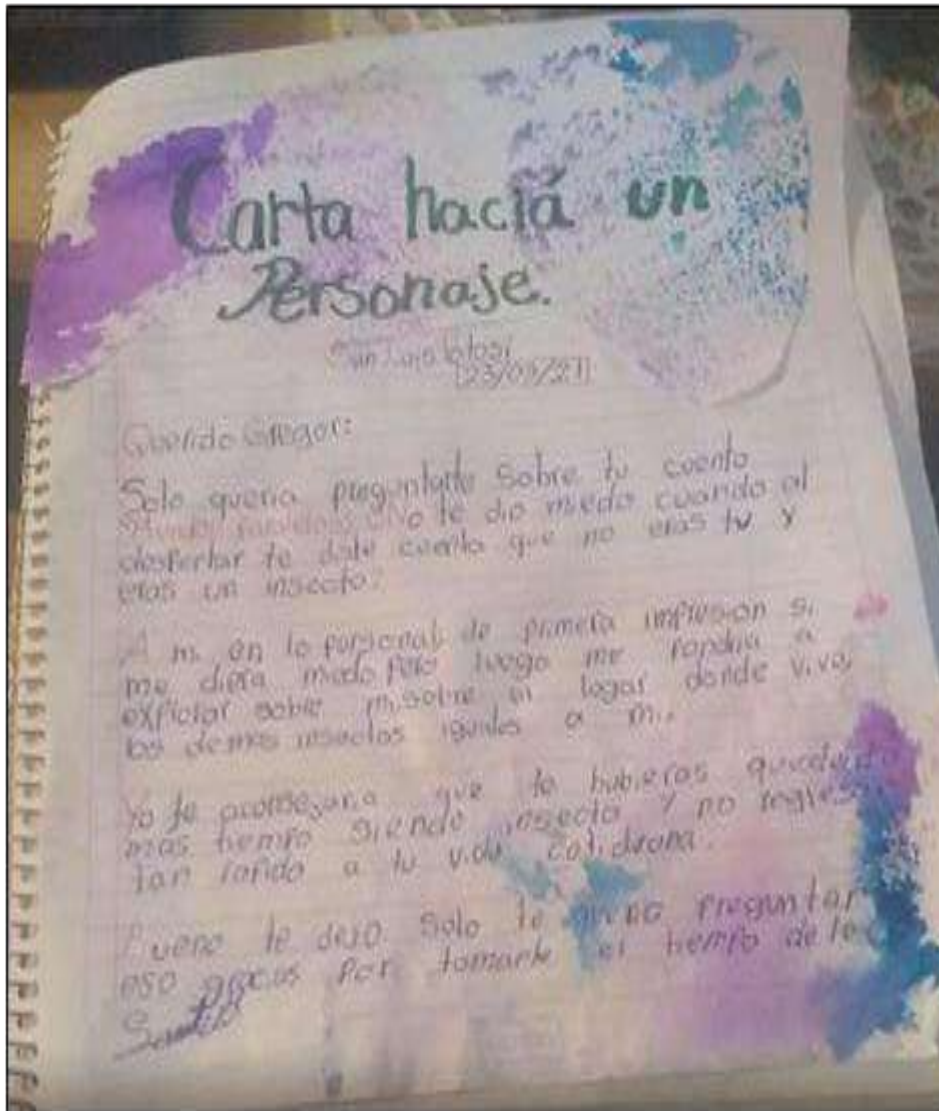 Carta haciá un
Personaje.
San Luis Potosí
23/03/21
Querido Gregor:
Solo queria preguntarte sobre tu cuento
No te dio miedo cuando al
despertar te date cuenta que no eras tu y
eras un insecto?
A mi en lo personal de primera impresion si
me diera miedo pero luego me pondria a
explorar sobre mi sobre el lugar donde viven
los demas insectos iguales a mi.
Yo te que te hubieras quedado
mas tiempo siendo insecto y no
tan rapido a tu vida cotidiana.
Bueno te dejo solo te queria preguntar
eso gracias por tomarte el tiempo de